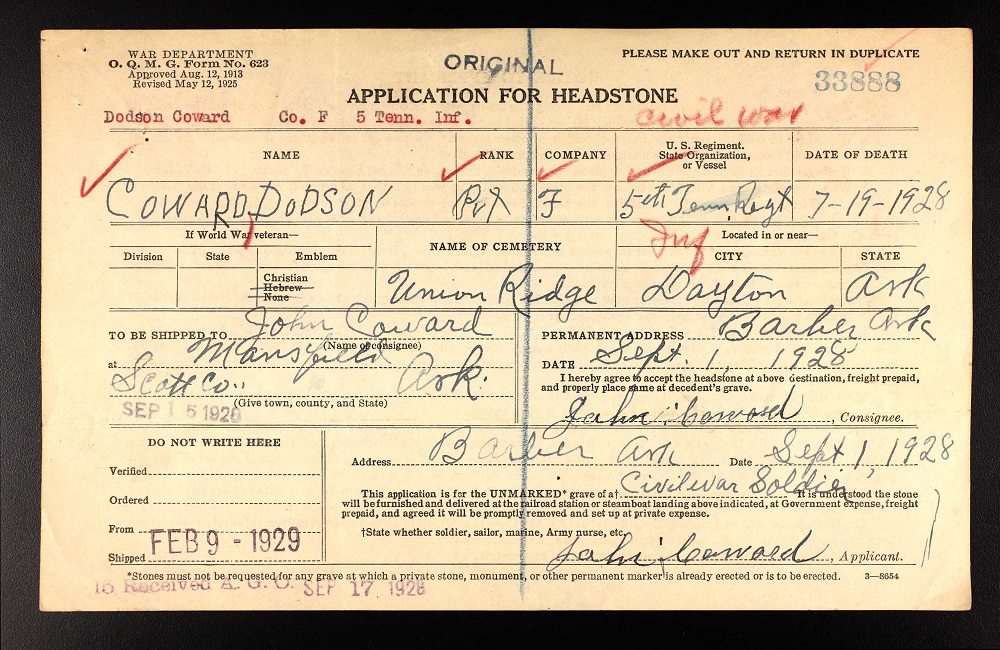 WAR DEPARTMENT
O. Q. M. G. Form No. 623
Approved Aug. 12, 1913
Revised May 12, 1925
ORIGINAL
PLEASE MAKE OUT AND RETURN IN DUPLICATE
33888
APPLICATION FOR HEADSTONE
Dodson Coward Co. F 5 Tenn. Inf.
Civil War
NAME
RANK
COMPANY
U. S. Regiment.
State Organization,
or Vessel
DATE OF DEATH
COWARD, DODSON
Pvt
F
5th Tenn Regt
Inf
7-19-1928
If World War veteran—
Division
State
Emblem
Christian
Hebrew
None
NAME OF CEMETERY
Union Ridge
Located in or near—
CITY
Dayton
STATE
Ark
TO BE SHIPPED TO John Coward
(Name of consignee)
at Mansfield
Scott Co., Ark.
(Give town, county, and State)
SEP 15 1928
PERMANENT ADDRESS Barber Ark
DATE Sept. 1, 1928
I hereby agree to accept the headstone at above destination, freight prepaid,
and properly place same at decedent's grave.
John Coward, Consignee.
DO NOT WRITE HERE
Verified
Ordered
From
Shipped
FEB 9 - 1929
Address Barber Ark Date Sept 1, 1928
This application is for the UNMARKED* grave of a† Civil war Soldier. It is understood the stone
will be furnished and delivered at the railroad station or steamboat landing above indicated, at Government expense, freight
prepaid, and agreed it will be promptly removed and set up at private expense.
†State whether soldier, sailor, marine, Army nurse, etc.
John Coward, Applicant.
*Stones must not be requested for any grave at which a private stone, monument, or other permanent marker is already erected or is to be erected.
3—8654
Received A. G. O. SEP 17 1928